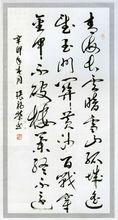 青海长云暗雪山孤城遥
望玉门関黄沙百戰穿
金甲不破楼兰终不还
辛卯年